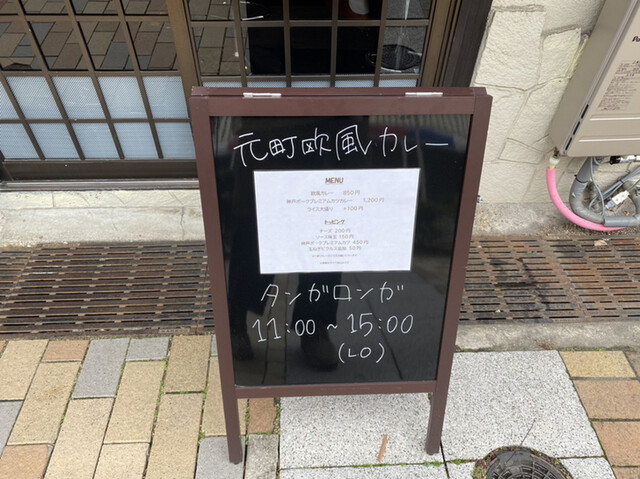 元町欧風カレー
MENU
欧風カレー 850円
神戸ポークプレミアムカツカレー 1,200円
ライス大盛り +100円
トッピング
チーズ 200円
ソース味玉 150円
神戸ポークプレミアムカツ 400円
50円
タンガロンガ
11:00～15:00
(LO)